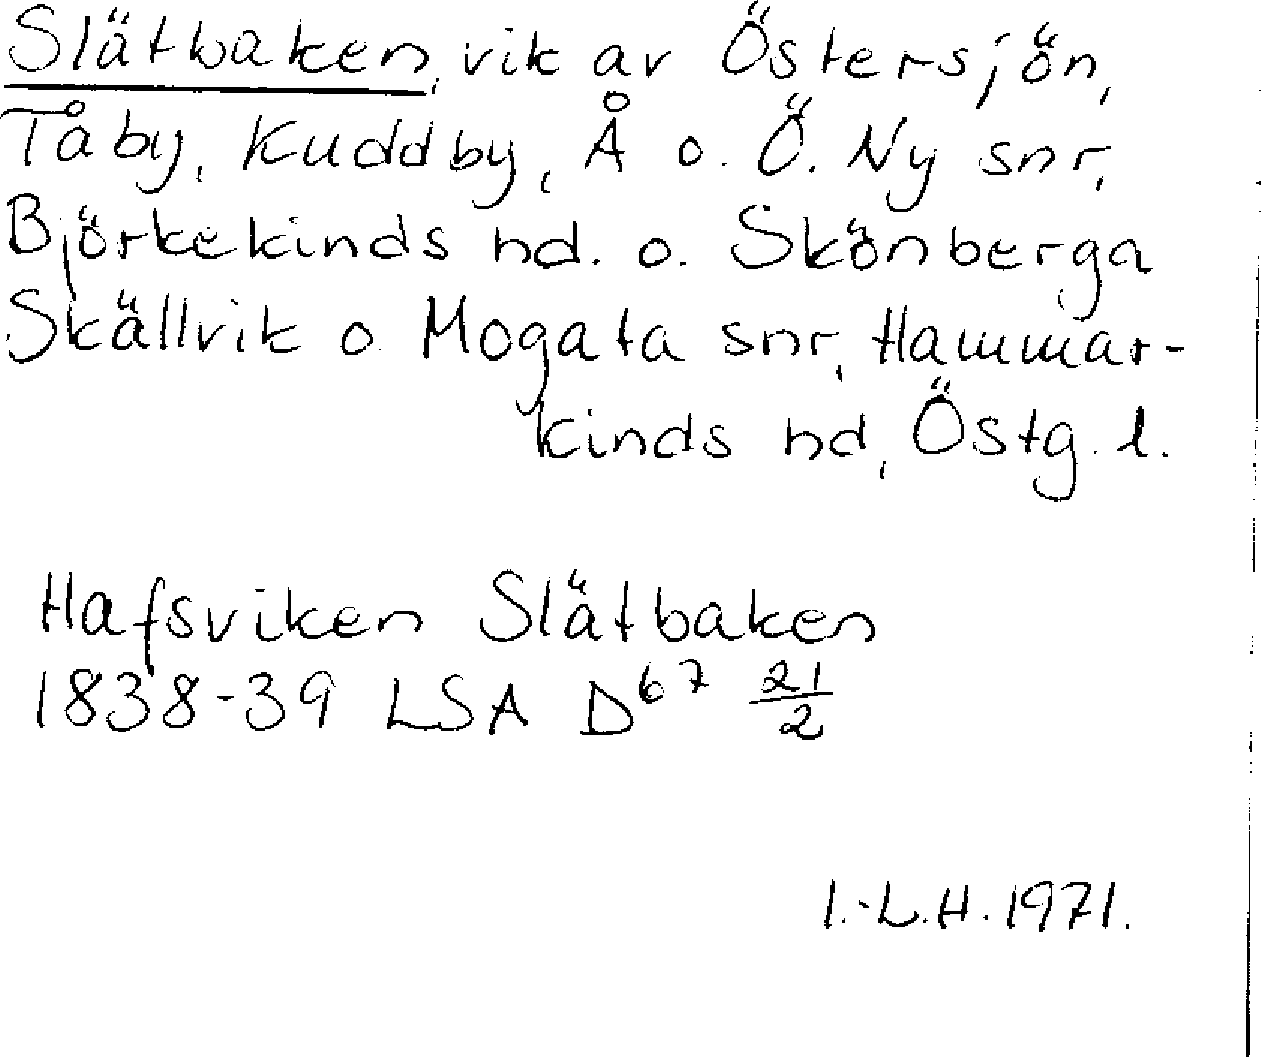 Slätbaken, vik av Östersjön,
Tåby, Kuddby, Å o. Ö. Ny snr,
Björkekinds hd. o. Skönberga
Skällvik o. Mogata snr, Hammar-
kinds hd, Östg. l.
Hafsviken Slätbaken
1838-39 LSA D67 21/2
I.-L.H. 1971.